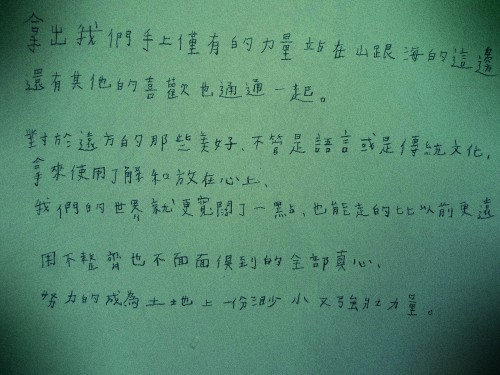 拿出我們手上僅有的力量站在山跟海的這邊
還有其他的喜歡也通通一起。
對於遠方的那些美好、不管是語言或是傳統文化,
拿來使用了解和放在心上、
我們的世界就更寬闊了一點、也能走的比以前更遠
用不整齊也不面面俱到的全部真心、
努力的成為土地上一份渺小又強壯力量。